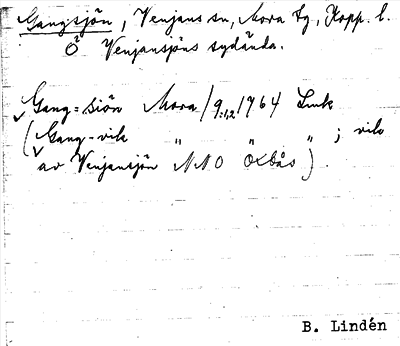 Gangsjön, Venjans sn, Mora tg, Kopp. l.
Ö Venjansjöns sydända.
Gang=siön Mora / 9:1,2 / 1764 Link
(Gang-vik " " " ; vik
av Venjansjön NNO Öxbås).
B. Lindén